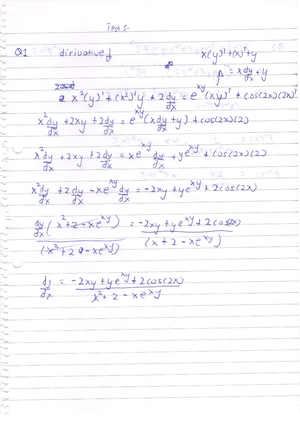 Test 5-
Q1 dirivative of x(y)'+(x)'+y
= x dy/dx + y
x²(y)'+(x²)'y+2dy/dx = e^xy(xy)'+cos(2x)(2x)'
x²dy/dx+2xy+2dy/dx = e^xy(xdy/dx+y)+cos(2x)(2)
x²dy/dx+2xy+2dy/dx = xe^xy dy/dx+ye^xy+cos(2x)(2)
x²dy/dx+2dy/dx-xe^xy dy/dx = -2xy+ye^xy+2cos(2x)
dy/dx(x²+2-xe^xy)/(x²+2-xe^xy) = -2xy+ye^xy+2cos(2x)/(x+2-xe^xy)
dy/dx = -2xy+ye^xy+2cos(2x)/x²+2-xe^xy